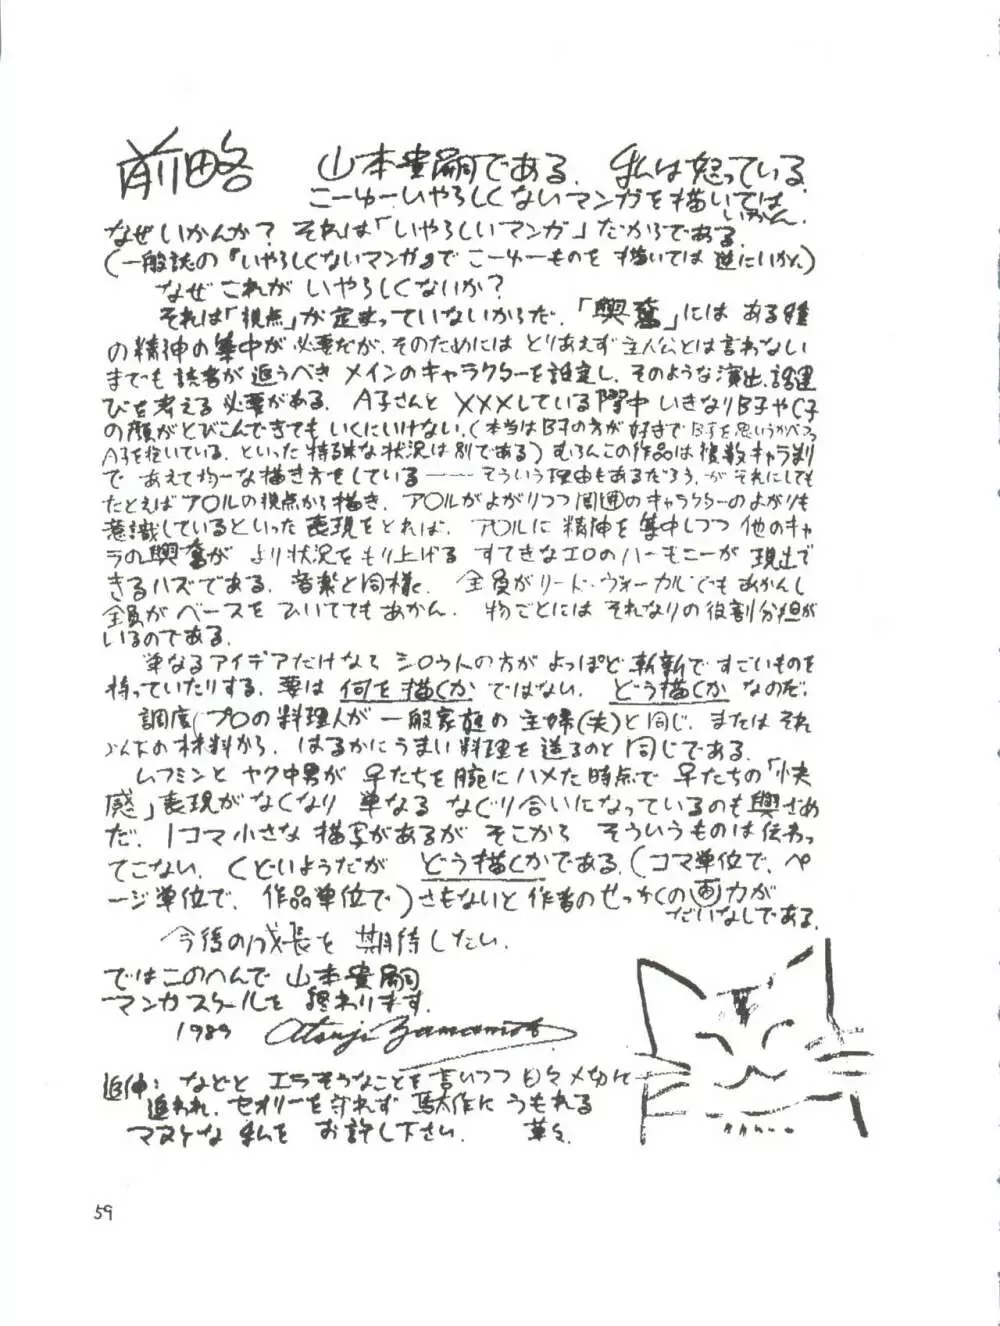 前略 山本貴嗣である。私は怒っている。
こーゆーいやらしくないマンガを描いては
いかん。
なぜいかんか？ それは「いやらしいマンガ」だからである。
(一般誌の『いやらしくないマンガ』でこーゆーものを描いては逆にいかん)
なぜこれがいやらしくないか？
それは「視点」が定まっていないからだ。「興奮」にはある種
の精神の集中が必要だが、そのためにはとりあえず主人公とは言わない
までも読者が追うべきメインのキャラクターを設定し、そのような演出、話運
びを考える必要がある。A子さんとXXXしている際中いきなりB子やC子
の顔がとびこんできてもいくにいけない。(本当はB子の方が好きでB子を思いうかべつつ
A子を抱いている、といった特殊な状況は別である) むろんこの作品は複数キャラ割
であえて均一な描き方をしている ─── そういう理由もあるだろう、がそれにしても
たとえばア○ルの視点から描き、ア○ルがよがりつつ周囲のキャラクターのよがりも
意識しているといった表現をとれば、ア○ルに精神を集中しつつ他のキャ
ラの興奮がより状況をもり上げるすてきなエロのハーモニーが現出で
きるハズである。音楽と同様に、全員がリード・ヴォーカルでもあかんし
全員がベースをひいててもあかん。物ごとにはそれなりの役割分担が
いるのである。
単なるアイデアだけなら シロウトの方がよっぽど斬新ですごいものを
持っていたりする。要は何を描くかではない。どう描くかなのだ。
調度 プロの料理人が一般家庭の主婦(夫)と同じ、またはそれ
以下の材料から、はるかにうまい料理を造るのと同じである。
ムフミンとヤク中男が 子たちを腕にハメた時点で 子たちの「快
感」表現がなくなり 単なるなぐり合いになっているのも興ざめ
だ。1コマ小さな描写があるが そこからそういうものは伝わっ
てこない。くどいようだが どう描くかである。(コマ単位で、ペ
ージ単位で、作品単位で) さもないと作者のせっかくの画力が
だいなしである。
今後の成長を期待したい。
ではこのへんで 山本貴嗣
マンガスクールを終わります。
1989 Atsuji Yamamoto
追伸：などとエラそうなことを言いつつ日々〆切に
追われ、セオリーを守れず駄作にうもれる
マヌケな私をお許し下さい。 草々
59